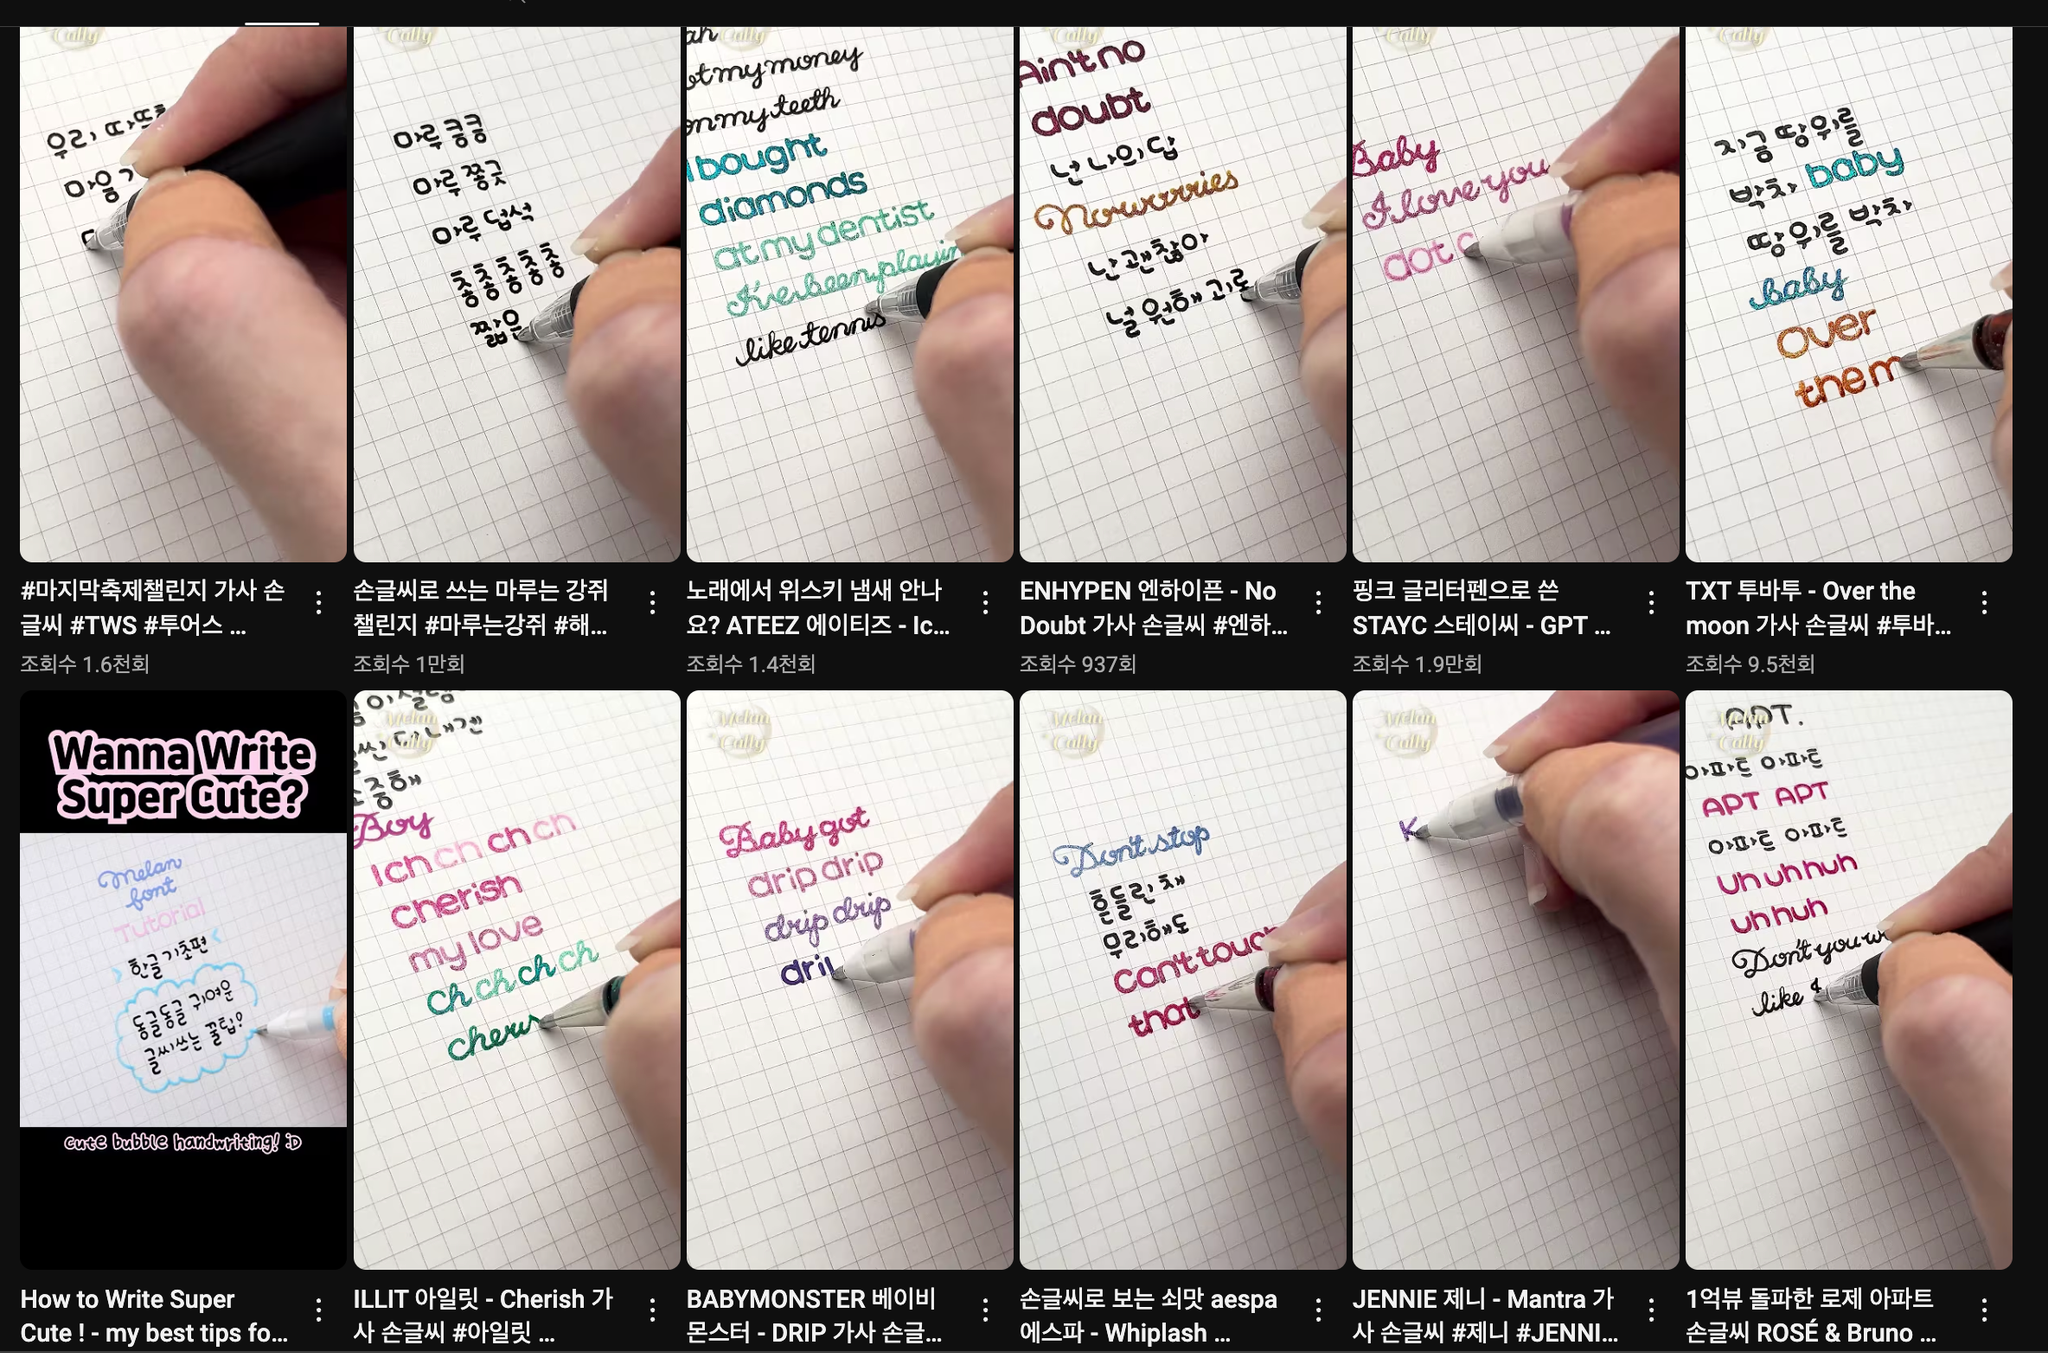 우리 따뜻
마음
마루 킁킁
마루 쫑긋
마루 덥석
촣촣촣촣촣
짧은
ah
my money
on my teeth
I bought
diamonds
at my dentist
I've been playin
like tennis
Ain't no
doubt
넌 나의 답
No worries
난 괜찮아
널 원해 괴로
Baby
I love you
dot
지금 땅 위를
박차 baby
땅 위를 박차
baby
Over
the m
#마지막축제챌린지 가사 손
글씨 #TWS #투어스 ...
조회수 1.6천회
손글씨로 쓰는 마루는 강쥐
챌린지 #마루는강쥐 #해...
조회수 1만회
노래에서 위스키 냄새 안나
요? ATEEZ 에이티즈 - Ic...
조회수 1.4천회
ENHYPEN 엔하이픈 - No
Doubt 가사 손글씨 #엔하...
조회수 937회
핑크 글리터펜으로 쓴
STAYC 스테이씨 - GPT ...
조회수 1.9만회
TXT 투바투 - Over the
moon 가사 손글씨 #투바...
조회수 9.5천회
Wanna Write
Super Cute?
Melan
font
Tutorial
한글 기초편
동글동글 귀여운
글씨 쓰는 꿀팁?
cute bubble handwriting! :D
Melan
Cally
소중해
Boy
I ch ch ch ch
cherish
my love
ch ch ch ch
cheris
Melan
Cally
Baby got
drip drip
drip drip
dri
Melan
Cally
Don't stop
흔들린 채
무리해도
Can't touch
that
Melan
Cally
K
Melan
Cally
APT.
아파트 아파트
APT APT
아파트 아파트
Uh huh huh
uh huh
Don't you w
like
How to Write Super
Cute ! - my best tips fo...
ILLIT 아일릿 - Cherish 가
사 손글씨 #아일릿 ...
BABYMONSTER 베이비
몬스터 - DRIP 가사 손글...
손글씨로 보는 쇠맛 aespa
에스파 - Whiplash ...
JENNIE 제니 - Mantra 가
사 손글씨 #제니 #JENNI...
1억뷰 돌파한 로제 아파트
손글씨 ROSÉ & Bruno ...